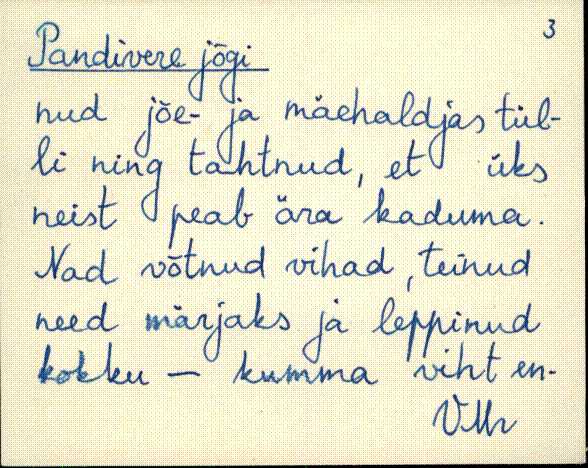 3
Pandivere jõgi
nud jõe- ja mäehaldjas tül-
li ning tahtnud, et üks
neist peab ära kaduma.
Nad võtnud vihad, teinud
need märjaks ja leppinud
kokku — kumma viht en-